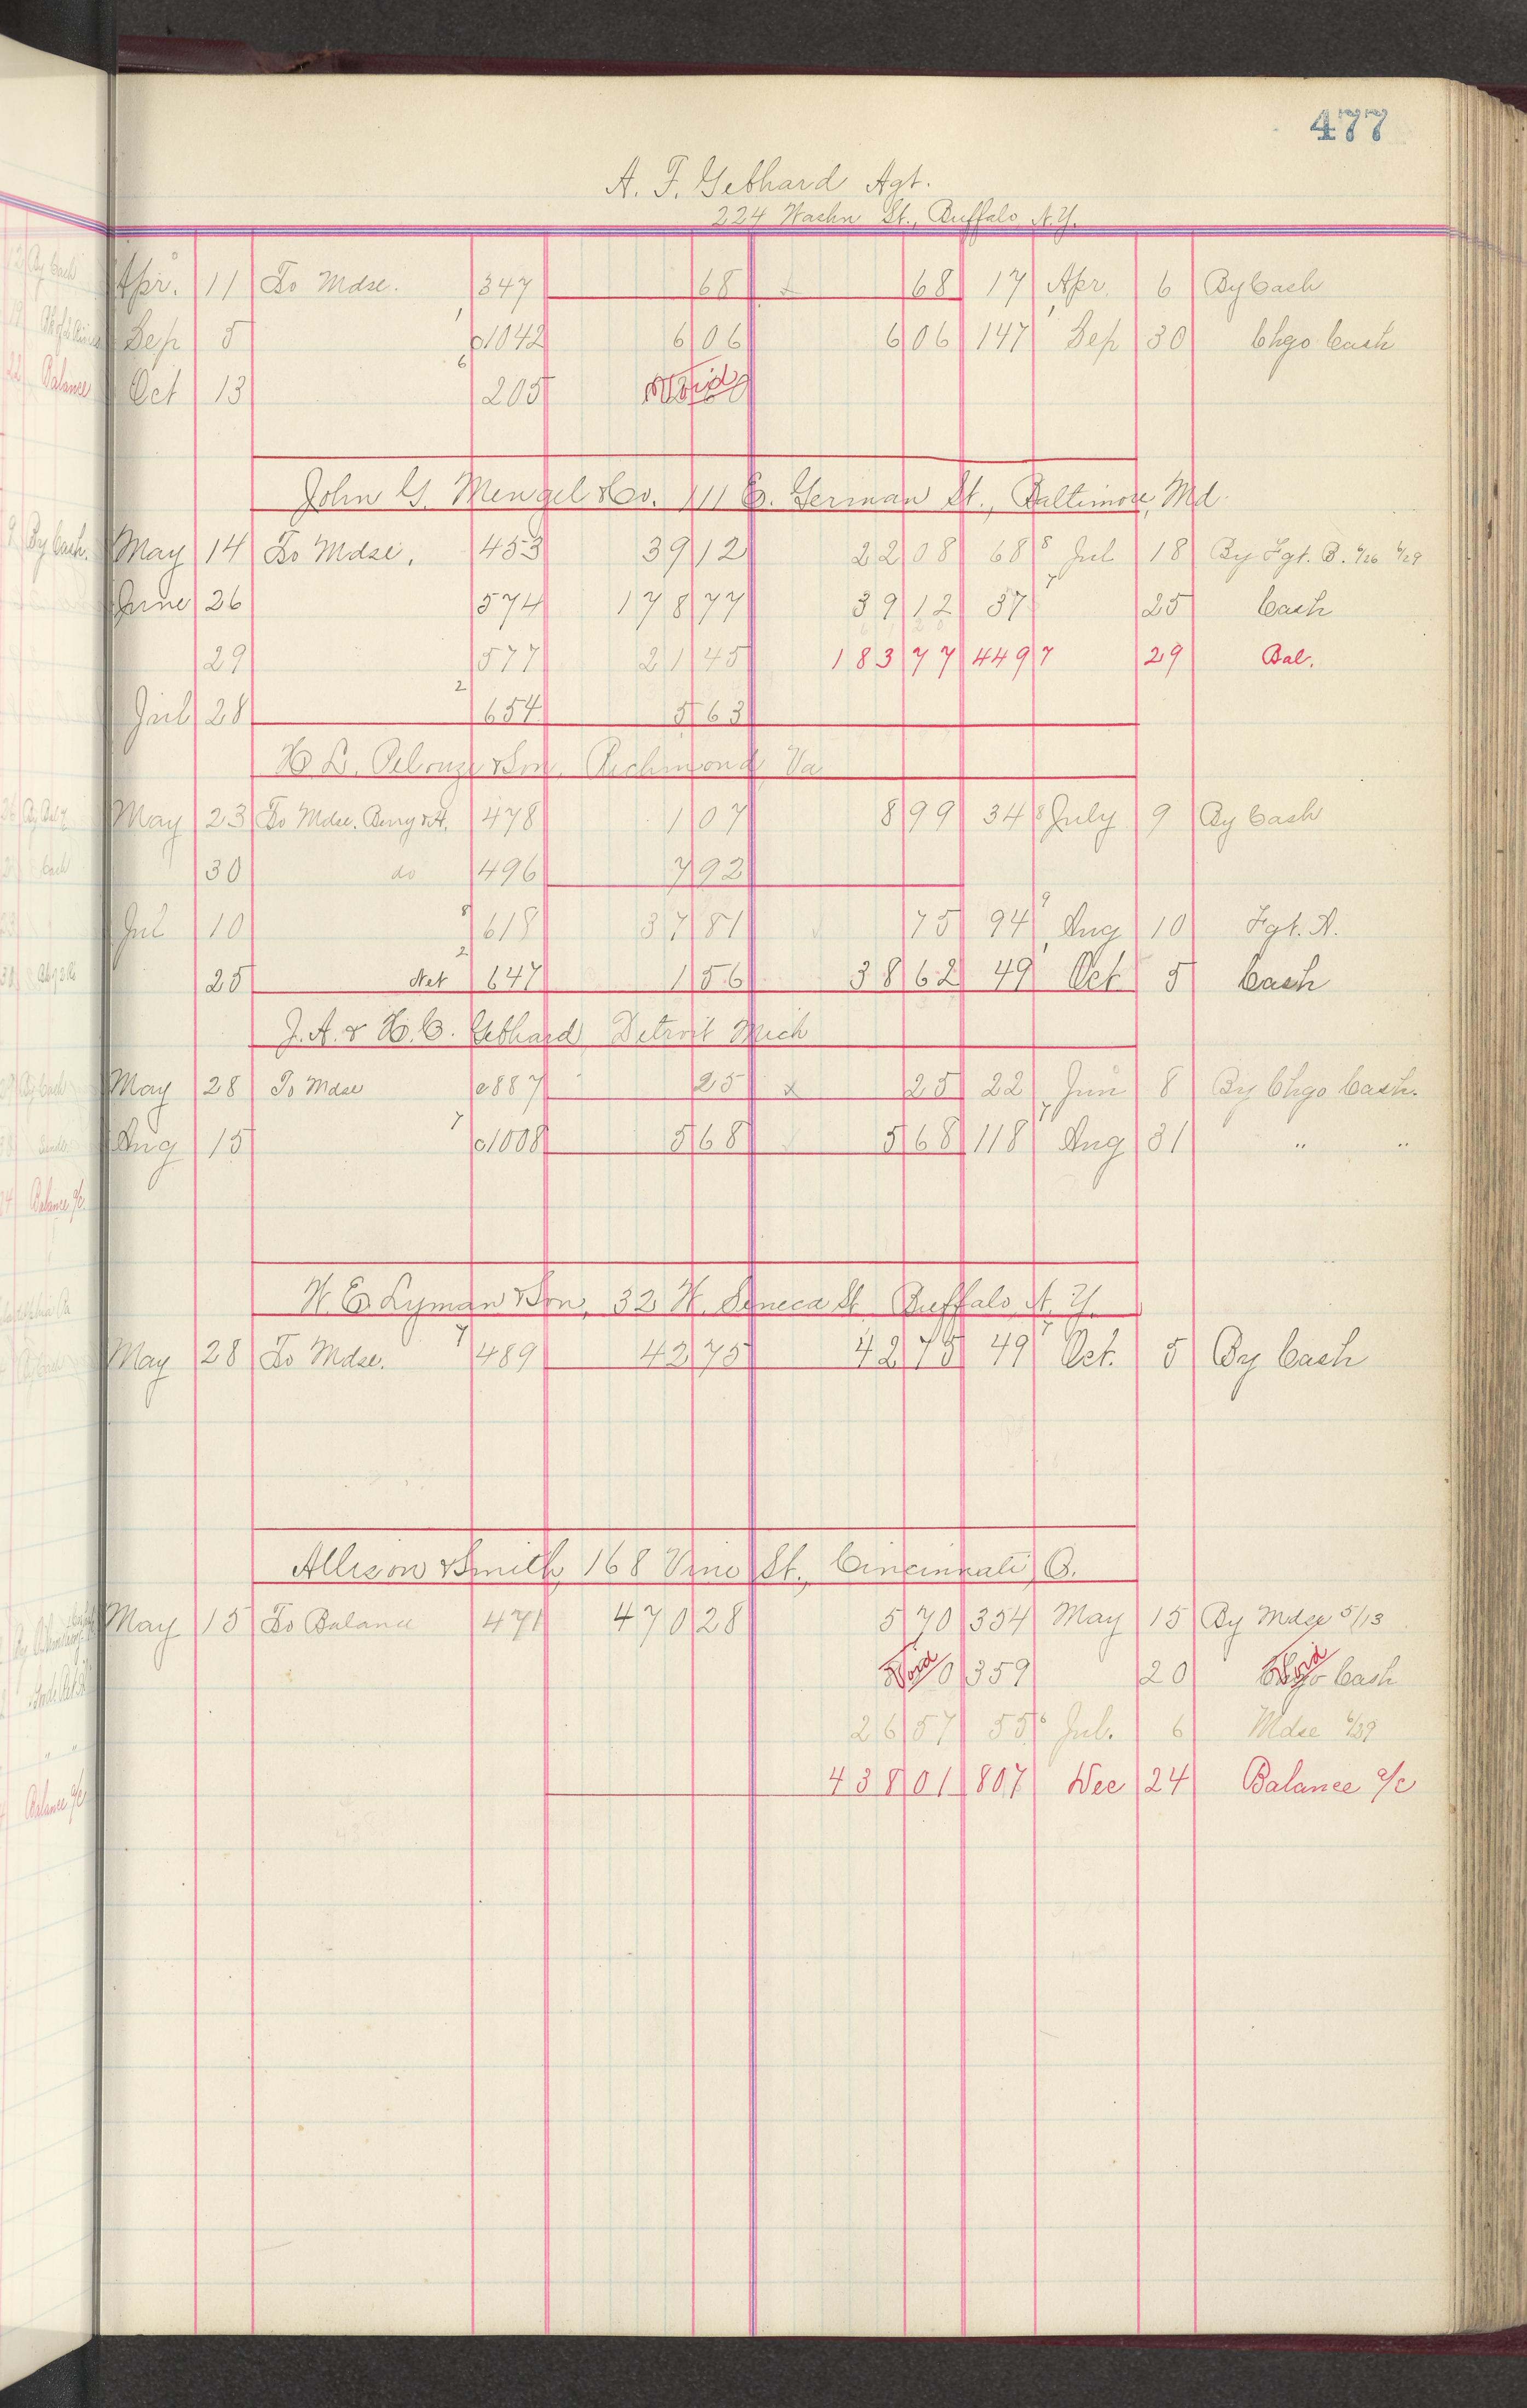 477
A. F. Gebhard Agt.
224 Washn St., Buffalo, N.Y.
Apr. 11 To Mdse. 347 68 x 68 17 Apr. 6 By Cash
Sep 5 c1042 6 06 6 06 147 Sep 30 Chgo Cash
Oct 13 205 Void
John G. Mengel & Co. 111 E. German St., Baltimore, Md.
May 14 To Mdse. 453 39 12 22 08 68 Jul 18 By Fgt. B. 6/26 6/29
June 26 574 178 77 39 12 37 25 Cash
29 577 21 45 183 77 449 29 Bal.
Jul 28 654 5 63
H. L. Pelouze & Son, Richmond, Va
May 23 To Mdse. Berry & A. 478 1 07 8 99 34 July 9 By Cash
30 do 496 7 92
Jul 10 618 37 81 75 94 Aug 10 Fgt. A.
25 Net 647 1 56 38 62 49 Oct 5 Cash
J. A. & H. C. Gebhard Detroit Mich
May 28 To Mdse c887 25 x 25 22 Jun 8 By Chgo Cash.
Aug 15 c1008 5 68 5 68 118 Aug 31 " "
W. E. Lyman & Son, 32 W. Seneca St. Buffalo, N.Y.
May 28 To Mdse. 489 42 75 42 75 49 Oct. 5 By Cash
Allison & Smith, 168 Vine St., Cincinnati, O.
May 15 To Balance 471 470 28 5 70 354 May 15 By Mdse 5/13
Void 359 20 Void Chgo Cash
26 57 55 Jul. 6 Mdse 6/29
438 01 807 Dec 24 Balance a/c